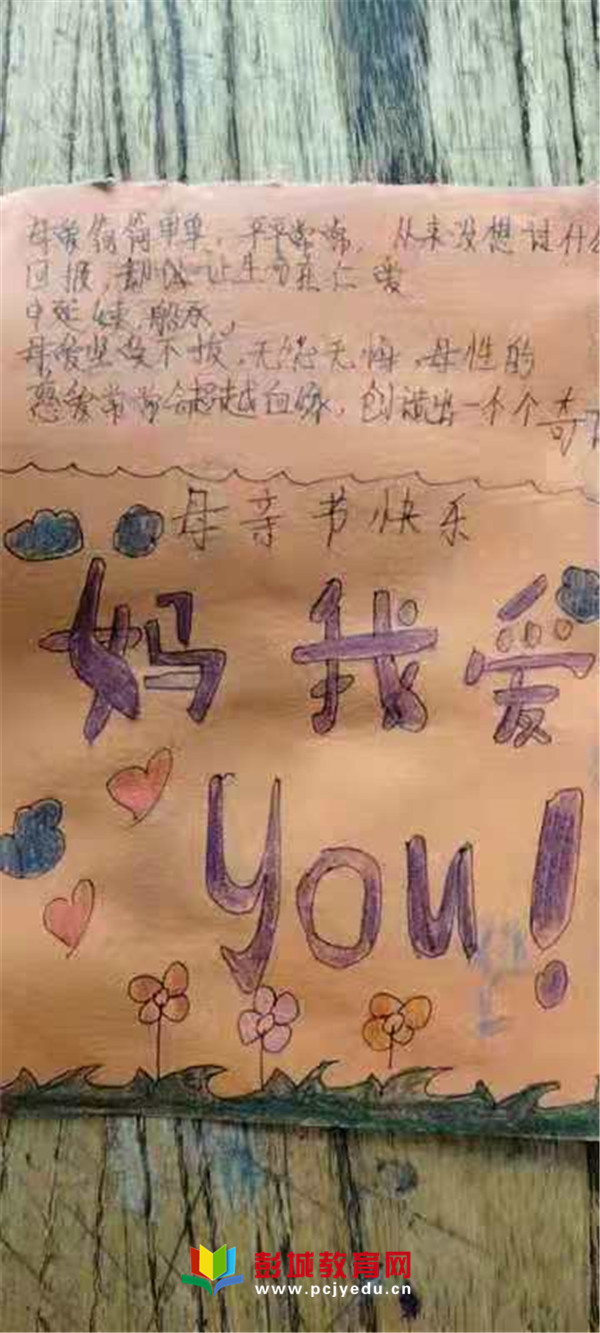 母爱简简单单，平平常常，从来没想过什么
回报，却 让生 在仁爱
中延续，
母爱坚毅不拔，无怨无悔，母性的
慈爱常常会超越血缘，创造出一个个奇
母亲节快乐
妈我爱
you!
彭城教育网
www.pcjyedu.cn